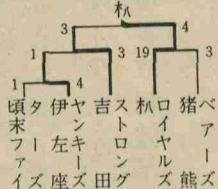 朳
3 4
1 3 19 3
1 4
頃末ファイターズ
伊左座ヤンキーズ
吉田ストロング
朳ロイヤルズ
猪熊ベアーズ